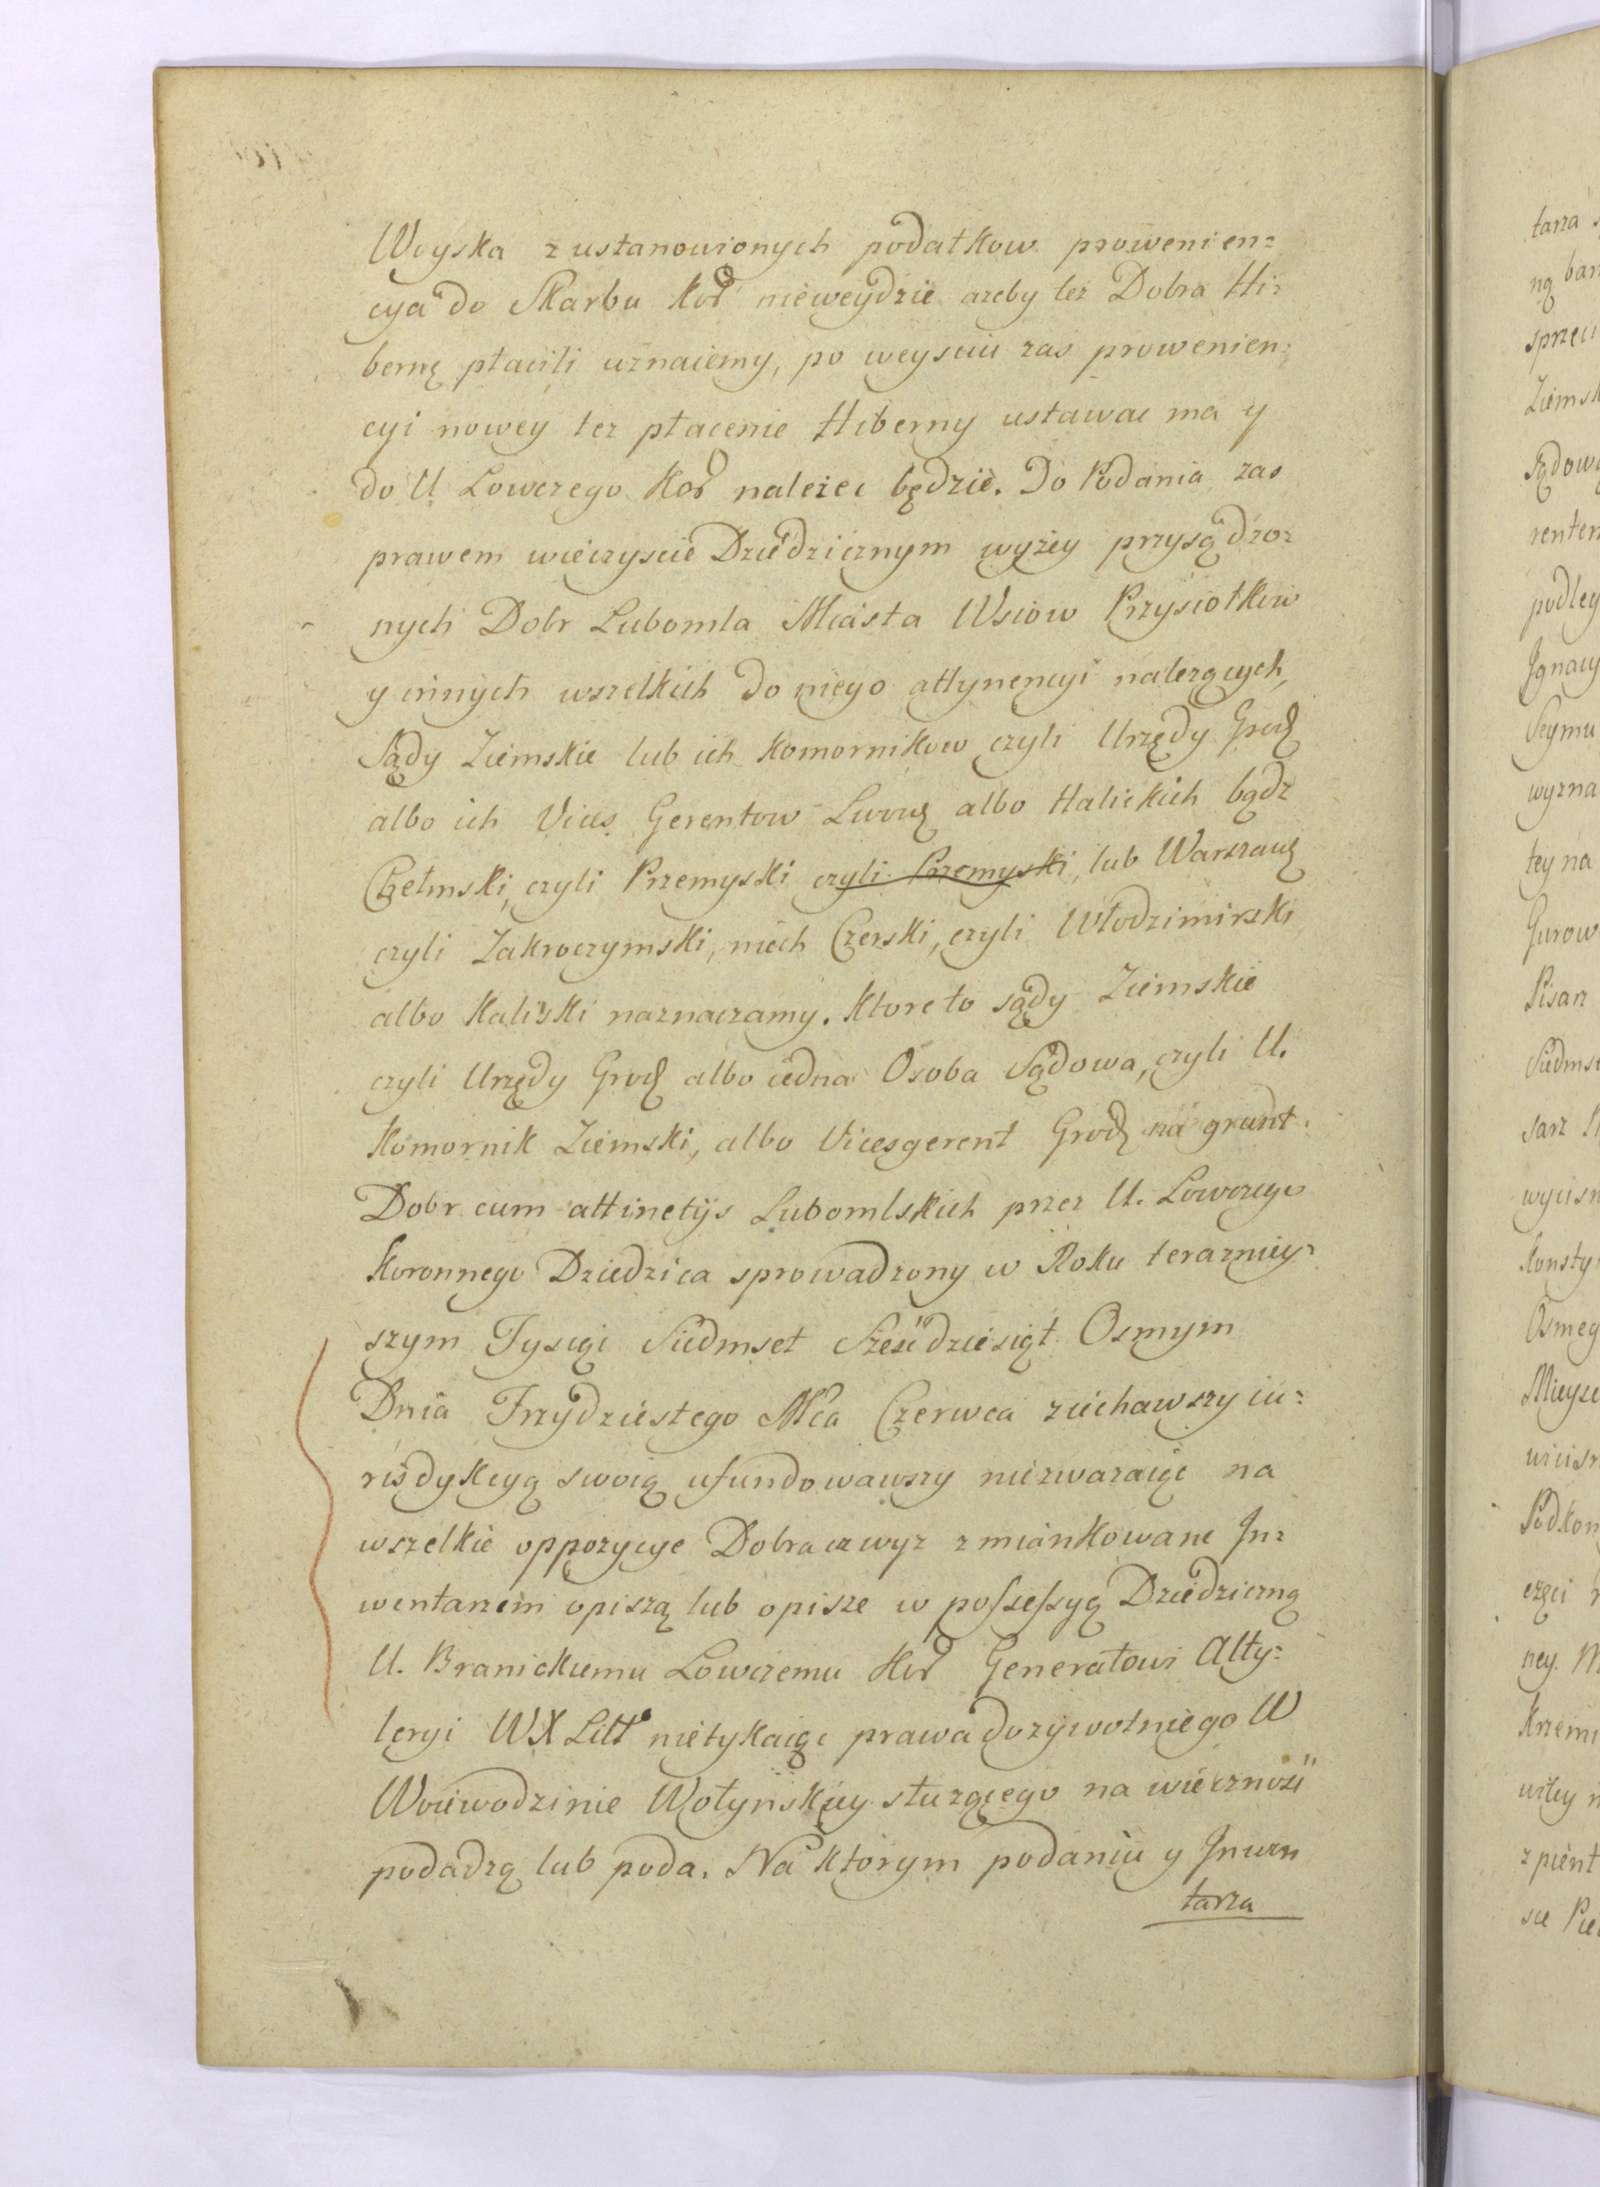 Woyska z ustanowionych podatkow prowenien=
cya do Skarbu Kor nieweydzie azeby tez Dobra Hi=
bernę płacili uznaiemy, po weysciu zas prowenien=
cyi nowey tez płacenie Hiberny ustawac ma y
do U Lowczego Kor nalezec będzie. Do Podania zas
prawem wieczyscie Dziedzicznym wyzey przysądzo=
nych Dobr Lubomla Miasta Wsiow Przysiołkow
y innych wszelkich do niego attynencyi nalezących,
Sądy Ziemskie lub ich Komornikow czyli Urzędy Grodz
albo ich Vices Gerentow Lwow albo Halickich bądz
Chełmski, czyli Przemyski czyli Przemyski, lub Warszaw
czyli Zakroczymski, niech Czerski, czyli Włodzimirski
albo Kaliski naznaczamy. Ktore to sądy Ziemskie
czyli Urzędy Grodz albo iedna Osoba Sądowa, czyli U.
Komornik Ziemski, albo Vicesgerent Grodz na grunt
Dobr cum attinetijs Lubomlskich przez U. Lowczego
Koronnego Dziedzica sprowadzony w Roku terazniey=
szym Tysiąc Siedmset Szescdziesiąt Osmym
Dnia Trzydziestego Mca Czerwca ziechawszy iu=
risdykcyą swoią ufundowawszy niezwazaiąc na
wszelkie oppozycye Dobra zwyz zmiankowane In=
wentarzem opiszą lub opisze w possessyą Dziedziczną
U. Branickiemu Lowczemu Kor Generałowi Alty=
leryi WX Litt nietykaiąc prawa dozywotniego W
Woiewodzinie Wołyńskiey słuzącego na wiecznosc
podadzą lub poda. Na ktorym podaniu y Inwen
tarza